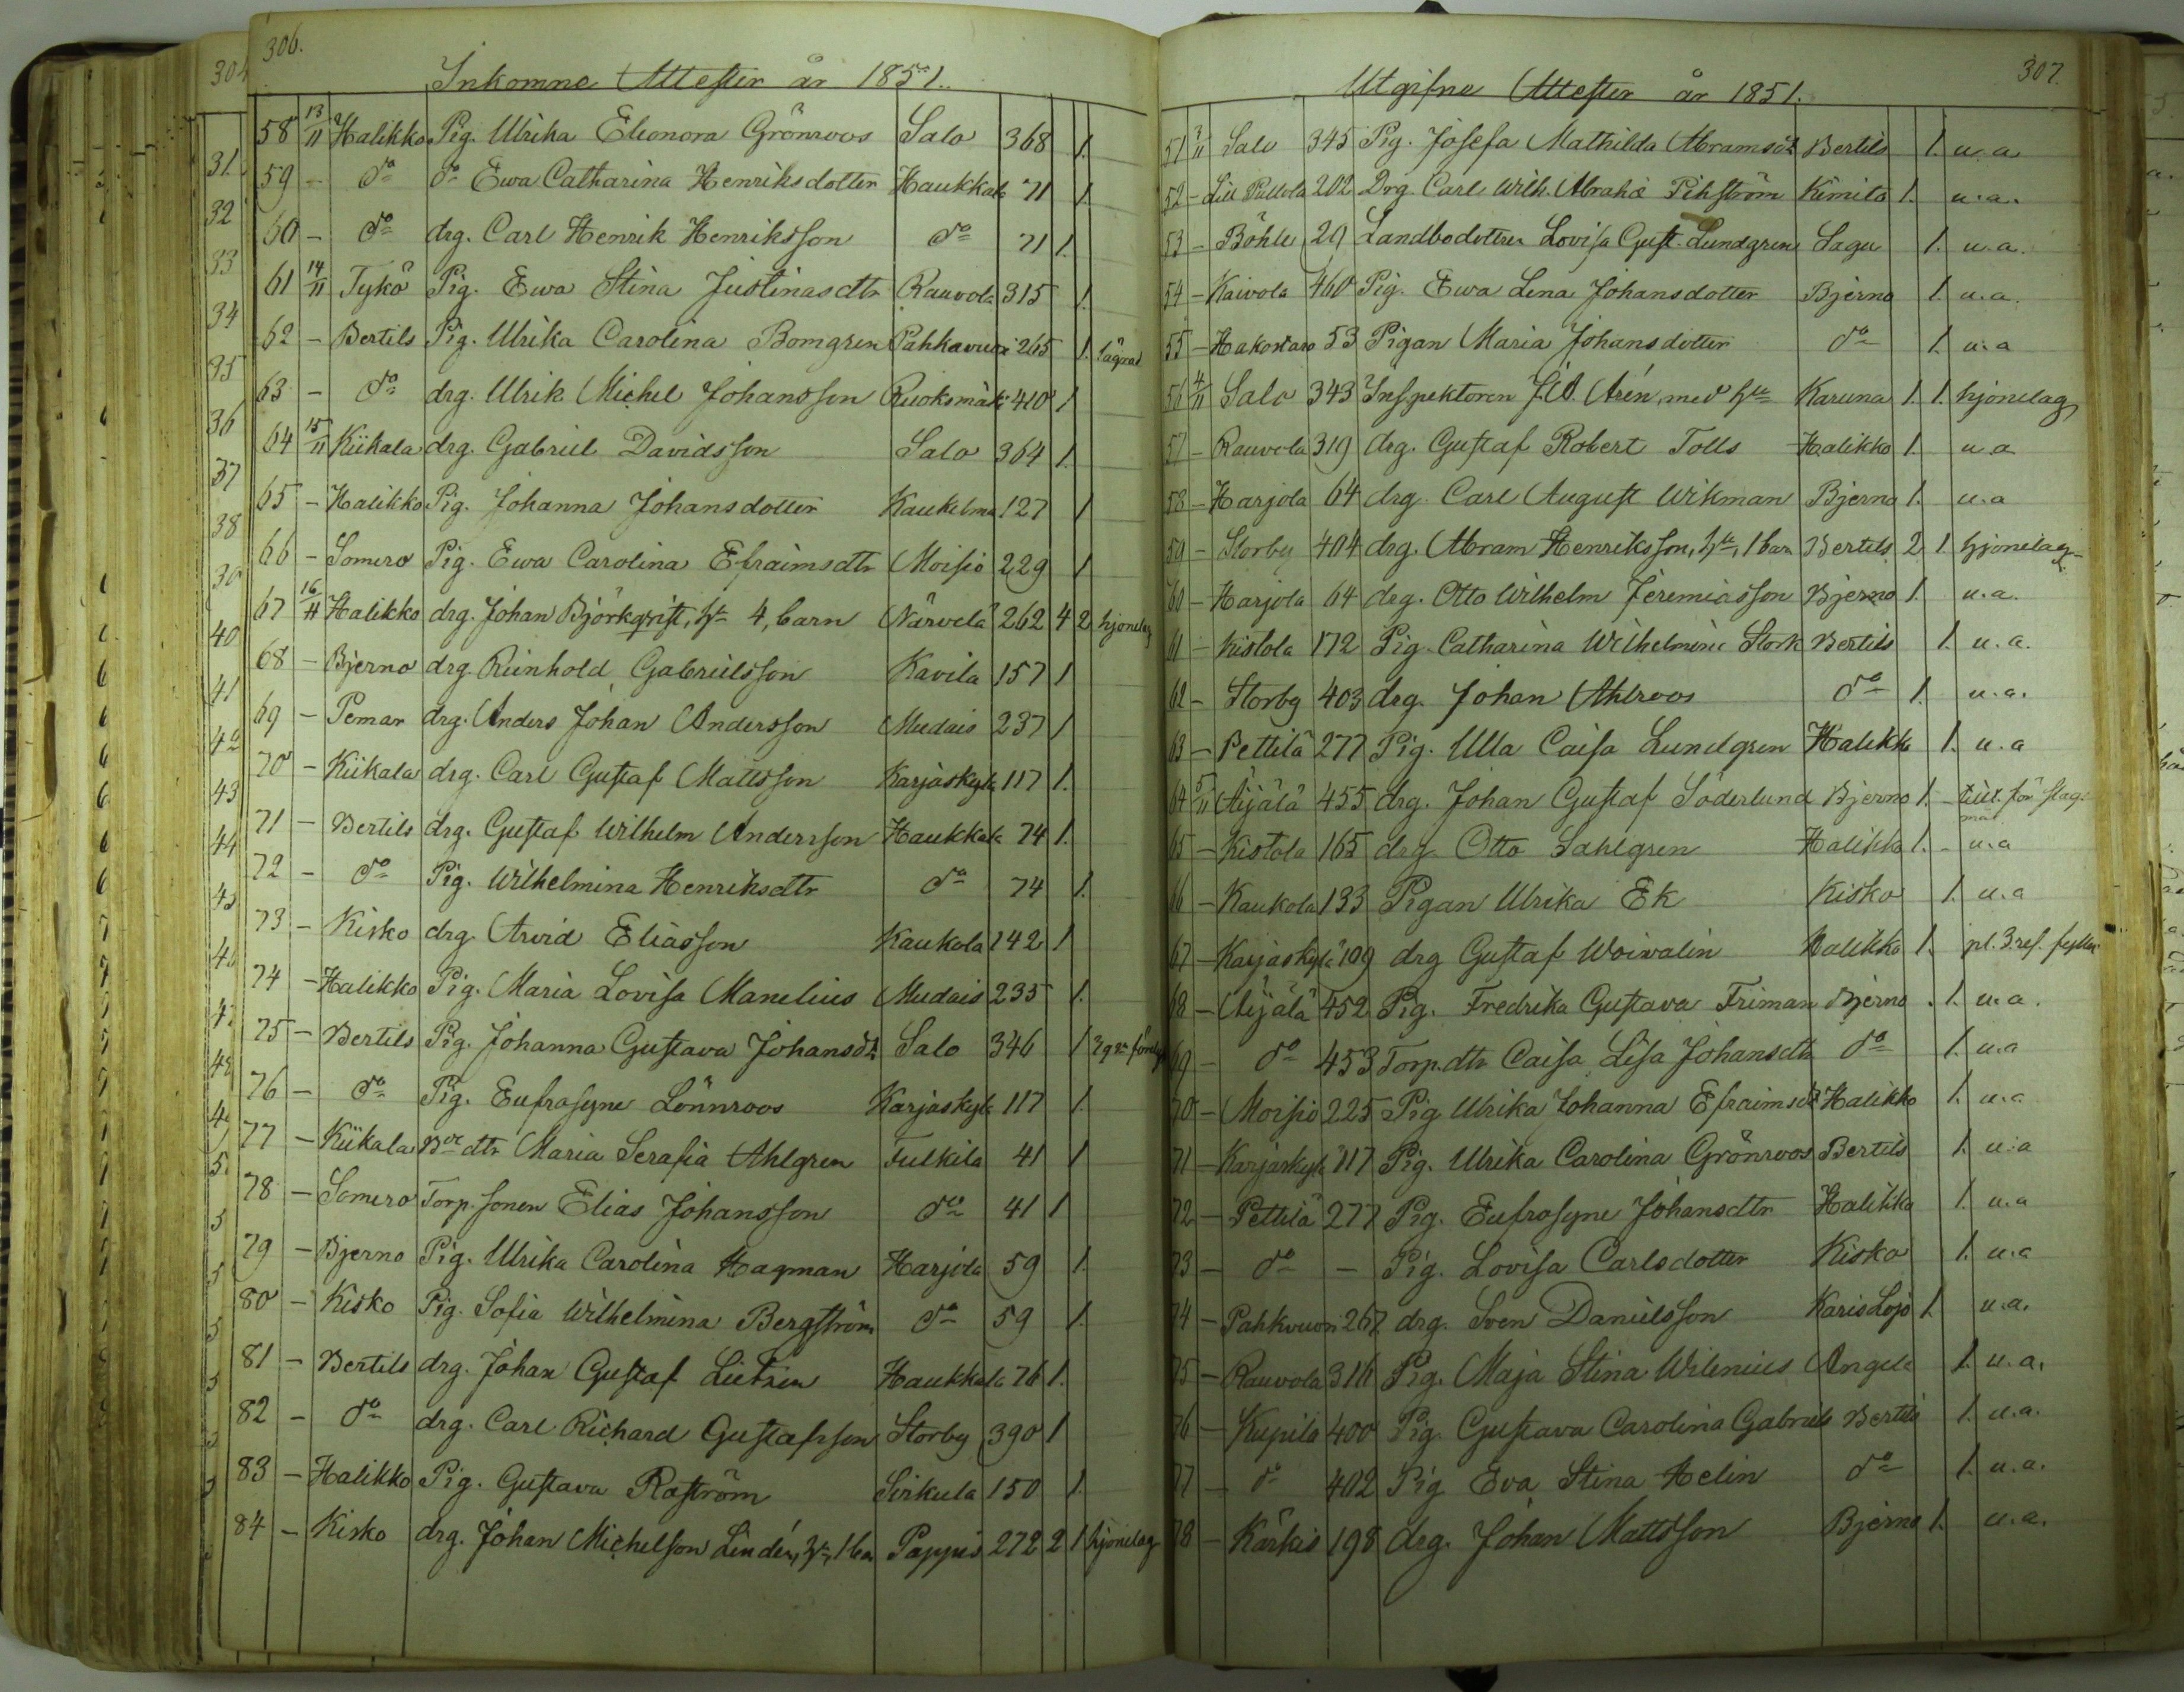 306.
Inkomne Attester år 1851.
58 13/11 Halikko Pig. Ulrika Eleonora Grönroos Salo 368 1.
59 - do do Ewa Catharina Henriksdotter Haukkala 71 1.
60 - do drg. Carl Henrik Henriksson do 71 1.
61 14/11 Tykö Pig. Ewa Stina Justinasdtr Rauvola 315 1.
62 - Bertils Pig. Ulrika Carolina Bomgren Pahkavuori 265 1.
63 - do drg. Ulrik Michel Johansson Ruoksmäki 410 1
64 15/11 Kiikala drg. Gabriel Davidsson Salo 364 1.
65 - Halikko Pig. Johanna Johansdotter Kaukelma 127 1
66 - Somero Pig. Ewa Carolina Efraimsdtr Moisio 229 1
67 16/11 Halikko drg. Johan Björkqvist, hu 4, barn Närvelä 262 4 2 hjonelag
68 - Bjerno drg. Reinhold Gabrielsson Kavila 157 1
69 - Pemar drg. Anders Johan Andersson Mudais 237 1
70 - Kiikala drg. Carl Gustaf Mattsson Karjaskylä 117 1.
71 - Bertils drg. Gustaf Wilhelm Andersson Haukkala 74 1.
72 - do Pig. Wilhelmina Henriksdtr do 74 1.
73 - Kisko drg. Arvid Eliasson Kaukola 142 1
74 - Halikko Pig. Maria Lovisa Manelius Mudais 235 1.
75 - Bertils Pig. Johanna Gustava Johansdt Salo 346 1
76 - do Pig. Eufrosyne Lönnroos Karjaskylä 117 1.
77 - Kiikala Bdedtr Maria Serafia Ahlgren Fulkila 41 1
78 - Somero Torp. sonen Elias Johansson do 41 1
79 - Bjerno Pig. Ulrika Carolina Hagman Harjola 59 1.
80 - Kisko Pig. Sofia Wilhelmina Bergström do 59 1.
81 - Bertils drg. Johan Gustaf Lietzen Haukkala 76 1.
82 - do drg. Carl Richard Gustafsson Storby 390 1
83 - Halikko Pig. Gustava Roström Sirkula 150 1.
84 - Kisko drg. Johan Michelson Lindén, hu, 1 ba Pappis 272 2 1 hjonelag
307.
Utgifne Attester år 1851.
51 3/11 Salo 345 Pig. Josefa Mathilda Abramsdt Bertils 1. u.a
52 - Lill Pullola 202 Drg. Carl Wilh. Abrah: Pihström Kimito 1. u.a.
53 - Böhle 29 Landbodottren Lovisa Gust. Lundgren Sagu 1. u.a.
54 - Kaivola 460 Pig. Ewa Lena Johansdotter Bjerno 1. u.a.
55 - Hakostaro 53 Pigan Maria Johansdotter do 1. u.a
56 4/11 Salo 343 Inspektoren J.A. Arén, med hu Karuna 1. 1. hjonelag
57 - Rauvola 319 drg. Gustaf Robert Tolls Halikko 1. u.a
58 - Harjola 64 drg. Carl August Wikman Bjerno 1. u.a
59 - Storby 404 drg. Abram Henriksson, hu, 1 barn Bertils 2 1. hjonelag
60 - Harjola 64 drg. Otto Wilhelm Jeremiasson Bjerno 1. u.a.
61 - Kistola 172 Pig. Catharina Wilhelmina Stork Bertils 1. u.a.
62 - Storby 403 drg. Johan Ahlroos do 1. u.a.
63 - Pettilä 277 Pig. Ulla Caisa Lundgren Halikko 1. u.a
64 5/11 Äijälä 455 drg. Johan Gustaf Söderlund Bjerno 1. - tillt. för slagsmål
65 - Kistola 165 drg. Otto Sahlgren Halikko 1. - u.a
66 - Kaukola 133 Pigan Ulrika Ek Kisko 1. u.a
67 - Karjaskylä 109 drg Gustaf Woivalin Halikko 1. pl. 3. res. fylleri
68 - Äijälä 452 Pig. Fredrika Gustava Friman Bjerno 1. u.a.
69 - do 453 Torp.dtr Caisa Lisa Johansdtr do 1. u.a
70 - Moisio 225 Pig Ulrika Johanna Efraimsdt Halikko 1. u.a
71 - Karjaskylä 117 Pig. Ulrika Carolina Grönroos Bertils 1. u.a
72 - Pettilä 277 Pig. Eufrosyne Johansdtr Halikko 1. u.a
73 - do - Pig. Lovisa Carlsdotter Kisko 1. u.a
74 - Pahkvuori 267 drg. Sven Danielsson Karis Lojo 1. u.a.
75 - Rauvola 316 Pig. Maja Stina Wilenius Angela 1. u.a.
76 - Kupila 400 Pig. Gustava Carolina Gabriels Bertils 1. u.a.
77 - do 402 Pig Eva Stina Helin do 1. u.a.
78 - Kärkis 198 drg. Johan Mattsson Bjerno 1. u.a.